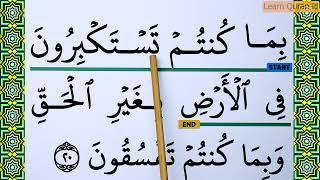 Learn Quran
بِمَا كُنتُمْ تَسْتَكْبِرُونَ
START
فِى ٱلْأَرْضِ بِغَيْرِ ٱلْحَقِّ
END
وَبِمَا كُنتُمْ تَفْسُقُونَ ٢٠